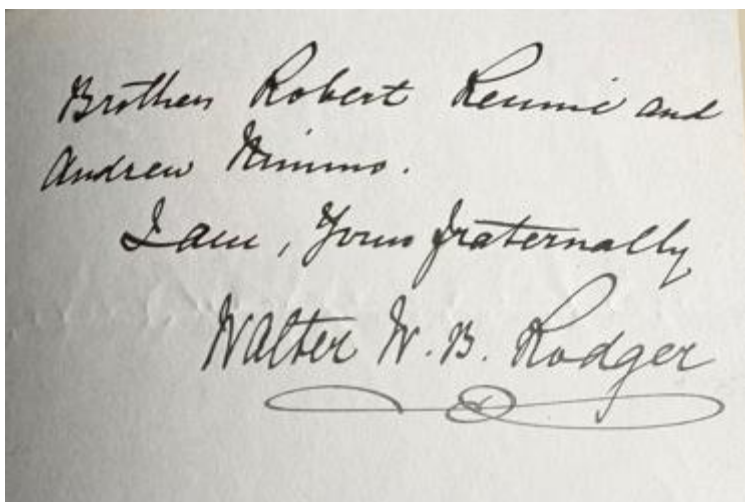 Brothers Robert Rennie and
Andrew Nimmo.
I am, Yours fraternally
Walter W. B. Rodger